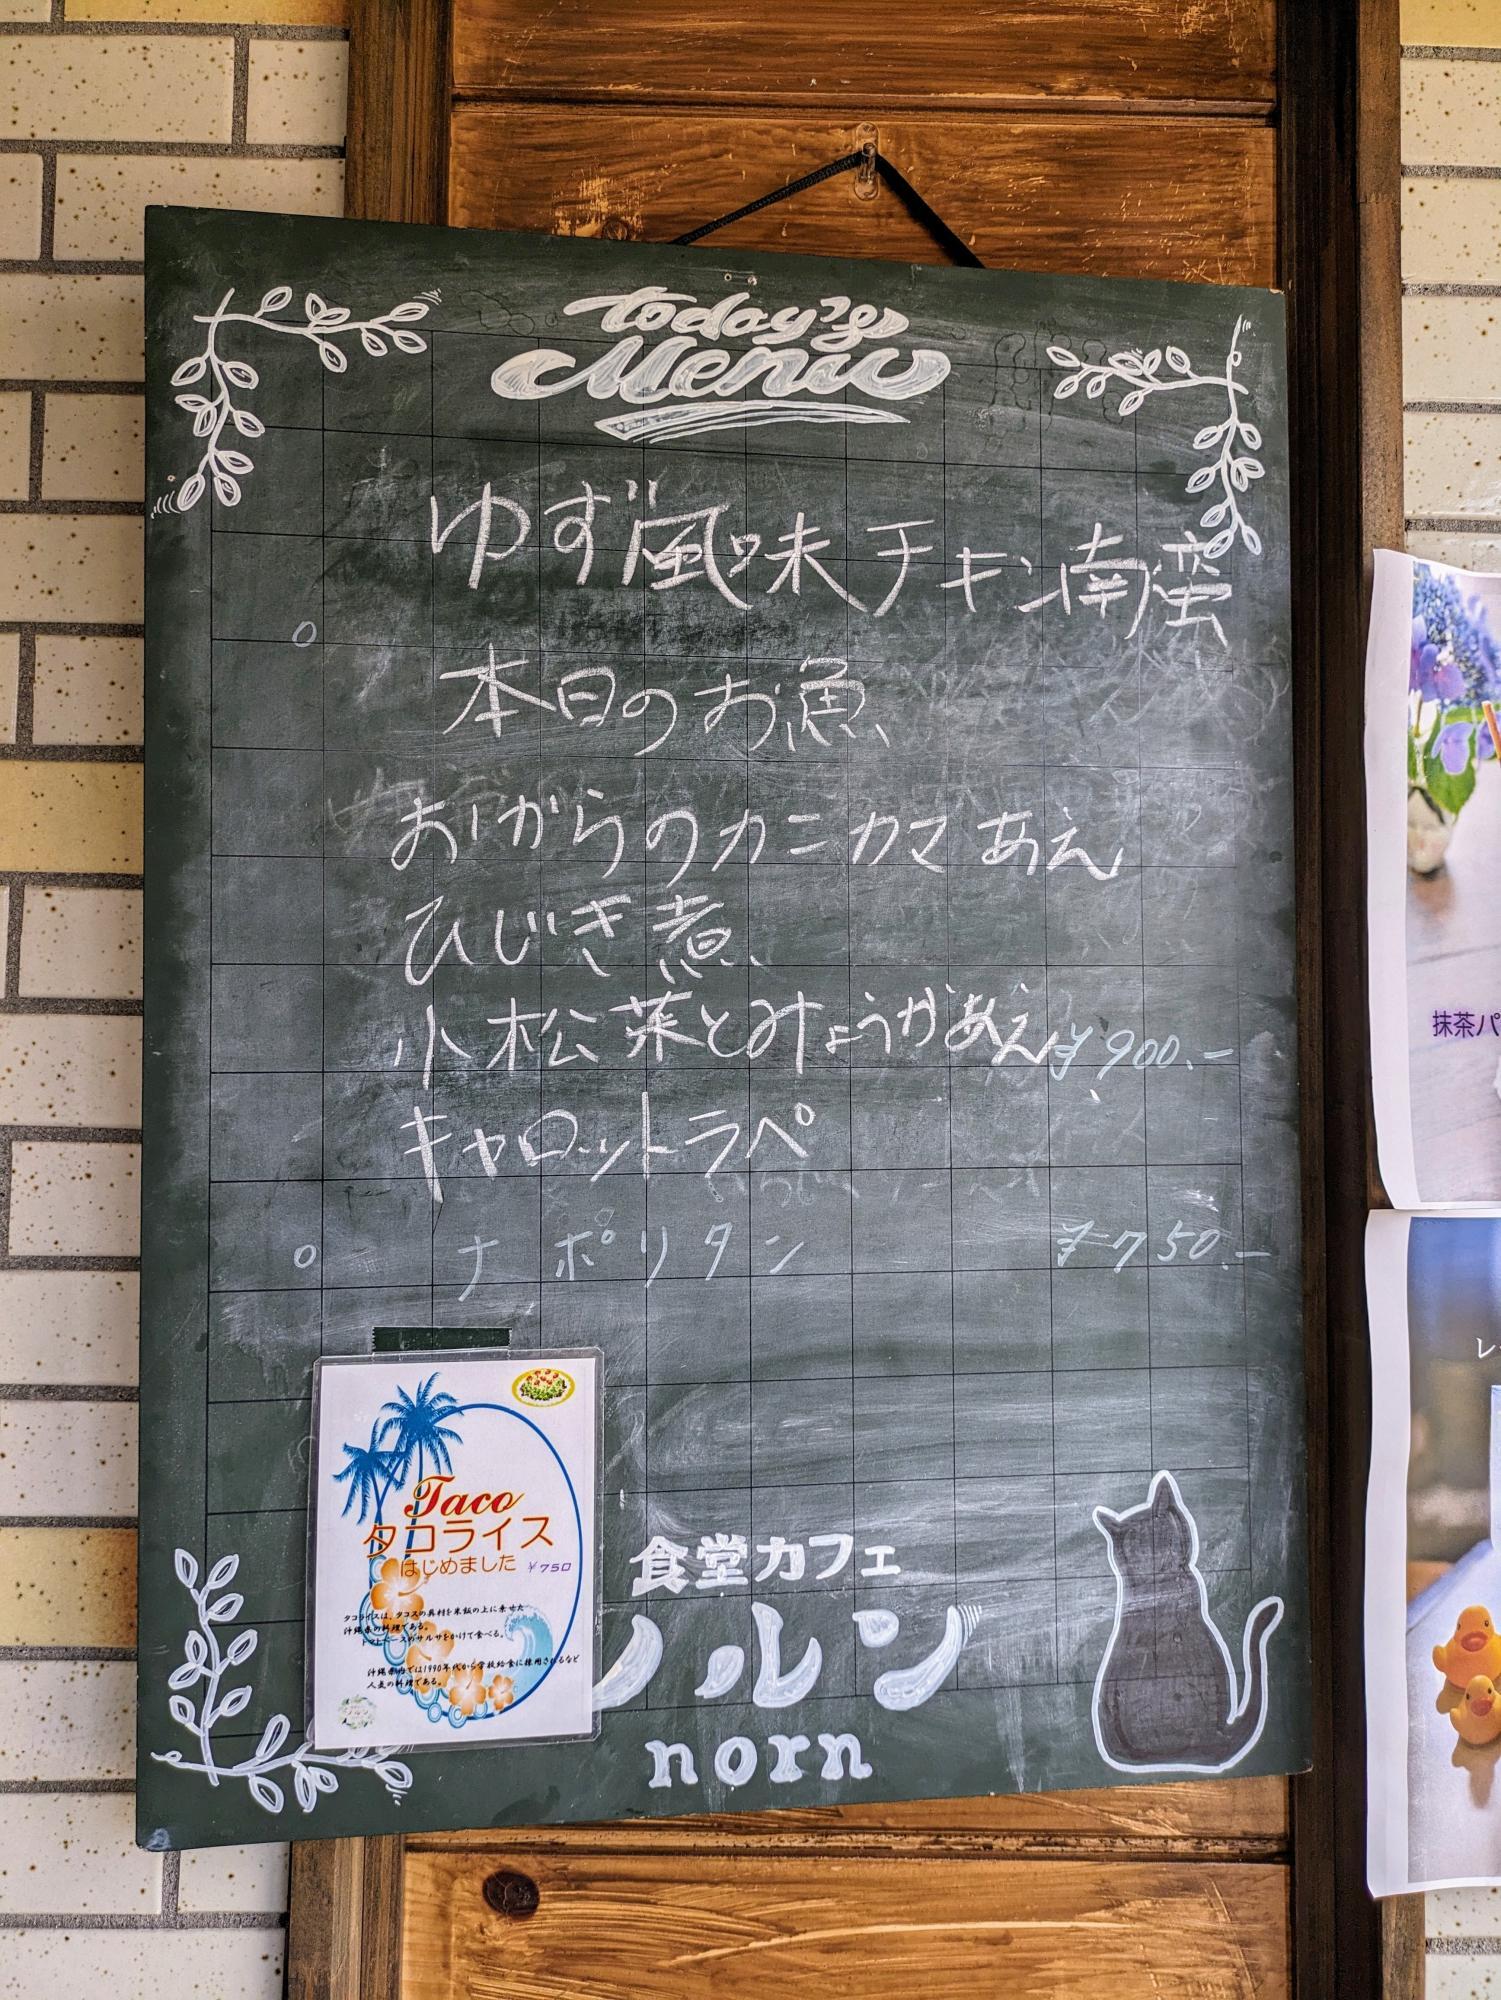 today's
Menu
ゆず風味チキン南蛮
本日のお魚
おからのカニカマあえ
ひじき煮
小松菜とみょうがあえ ¥900.-
キャロットラペ
ナポリタン ¥750.-
Taco
タコライス
はじめました ¥750
タコライスは、タコスの具材を米飯の上に乗せた
沖縄県の料理である。
トマトベースのサルサをかけて食べる。
沖縄県内では1990年代から学校給食に採用されるなど
人気の料理である。
食堂カフェ
ノルン
norn
抹茶パ
レ